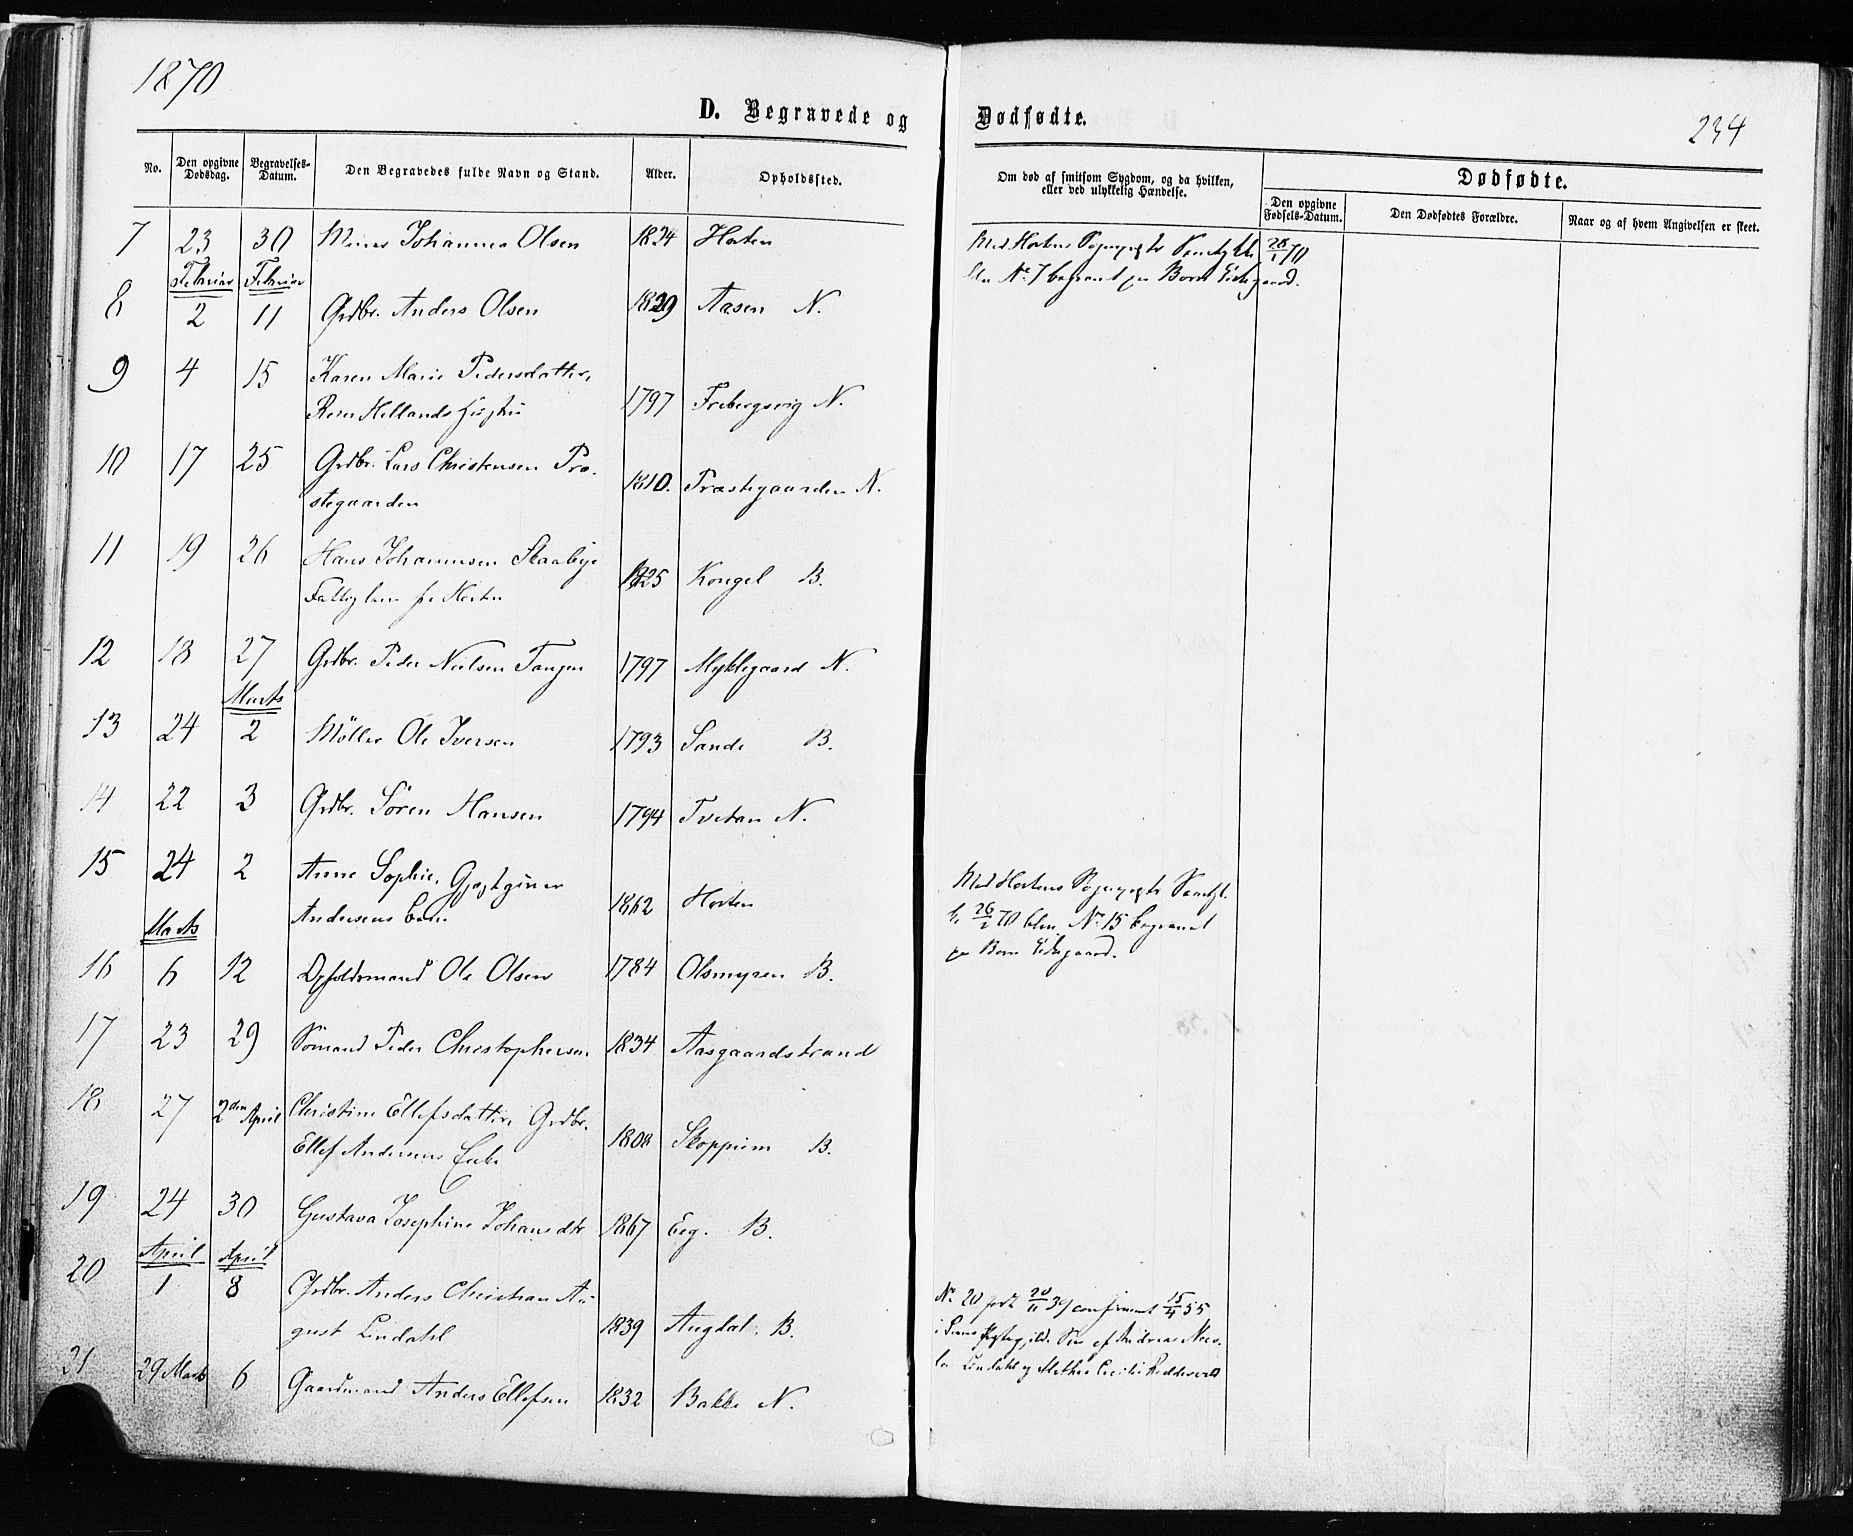 1870
D. Begravede og Dødfødte.
234
No.
Den opgivne Dødsdag.
Begravelses-Datum.
Den Begravedes fulde Navn og Stand.
Alder.
Opholdssted.
Om død af smitsom Sygdom, og da hvilken, eller ved ulykkelig Hændelse.
Dødfødte.
Den opgivne Fødsels-Datum.
Den Dødfødtes Forældre.
Naar og af hvem Angivelsen er skeet.
7 23 30 Johannes Olsen 1824 Horten
Med Hortens 26/1 70
No 7 begravet paa Borre
Februar Februar
8 2 11 Grdbr. Anders Olsen 1829 Aasen N.
9 4 15 Karen Marie Pedersdatter,
1797 Frebergsvig N.
10 17 25 Grdbr. Lars Christensen Præ-
stegaarden 1810. Præstegaarden N.
11 19 26 Hans Johannesen Skaabye
Horten 1825 Kongel B.
12 18 27 Grdbr. Peder Neilsen Tangen 1797 Myklegaard N.
Marts
13 24 2 Møller Ole Iversen 1793 Sande B.
14 22 3 Grdbr. Sören Hansen 1794 Tvetan N.
15 24 2 Anne Sophie, Gjæstgiver
Andersens Barn 1862 Horten
Med Hortens
26/2 70 No 15 begravet
paa Borre
Marts
16 6 12 Opholdsmand Ole Olsen 1784 Olsmyren B.
17 23 29 Sömand Peder Christophersen 1834 Aasgaardstrand
18 27 2den April Christine Ellefsdatter, Grdbr.
Ellef Andersens Enke 1808 Skoppum B.
19 24 30 Gustava Josephine Johansdtr 1867 Eeg. B.
April April
20 1 8 Grdbr. Anders Christian Au-
gust Lindahl 1839 Augdal. B.
No 20 født 20/11 39 confirmeret 15/4 55
i Søn af Andreas
Lindahl og Cecilie
21 29 Marts 6 Gaardmand Anders Ellefsen 1832 Bakke N.